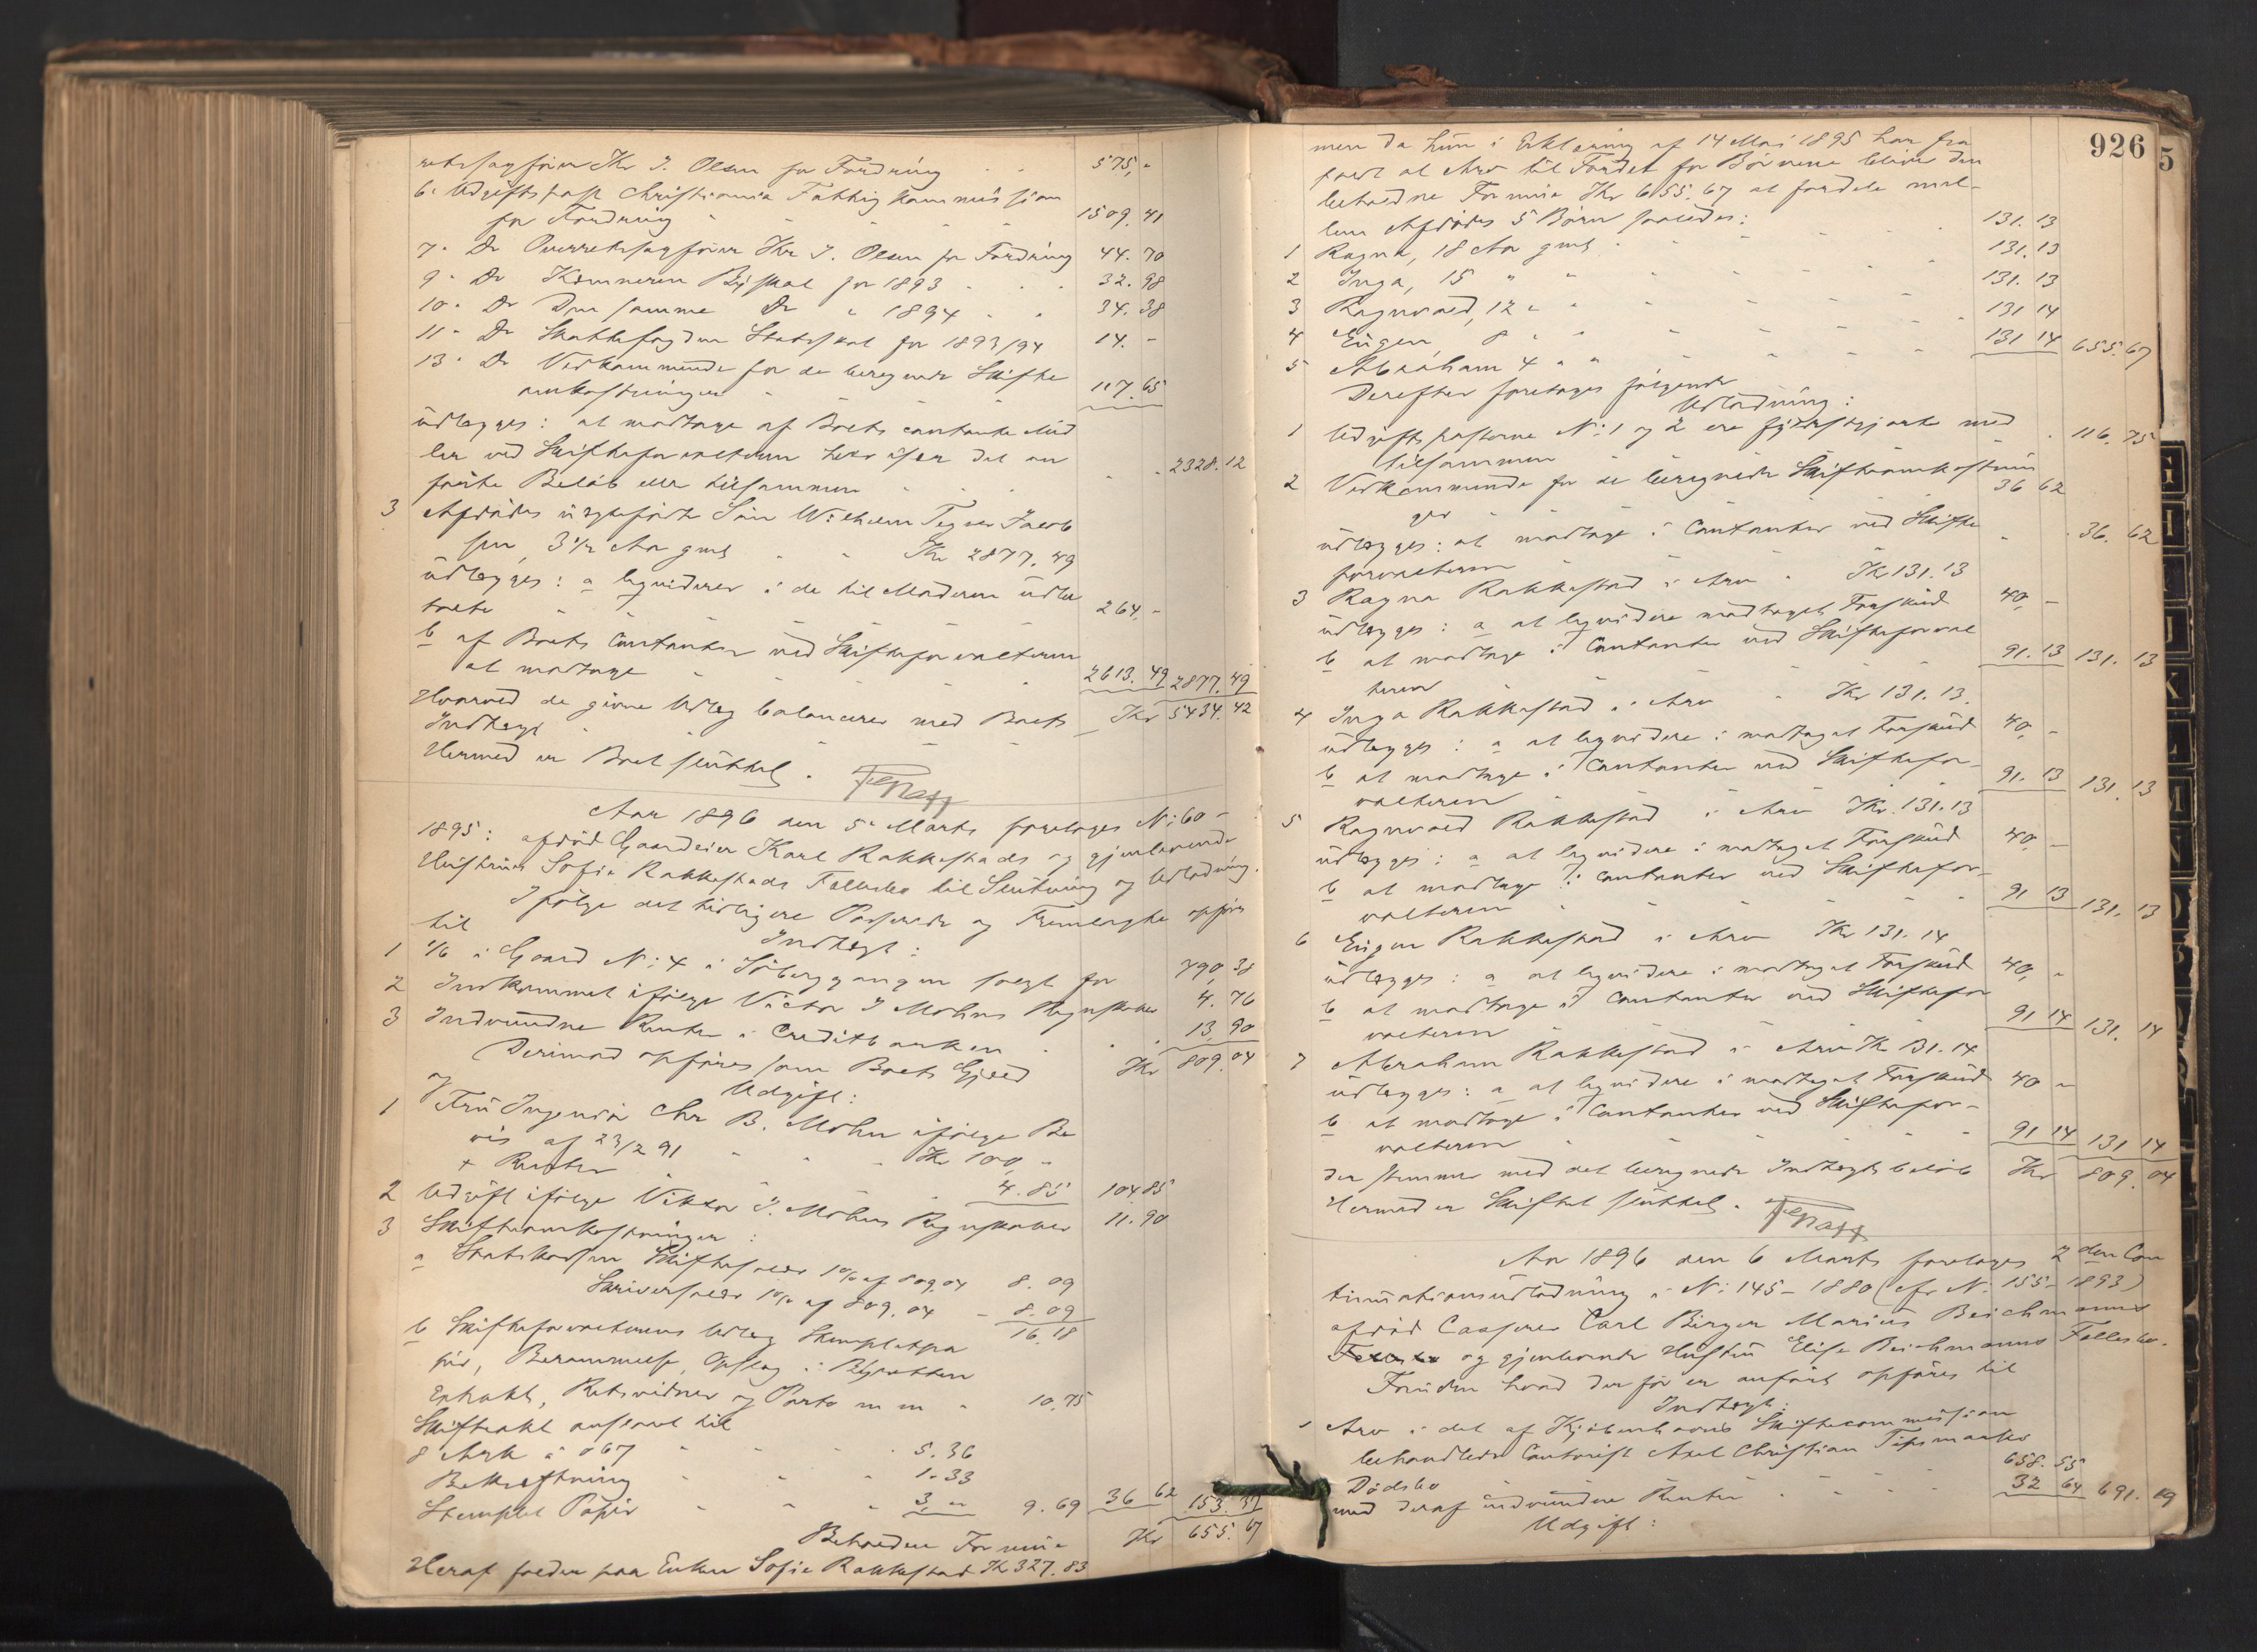 retssagfører Kr J. Olsen for Fordring 575,"
6. Udgiftspost Christiania Fattigkommission
for Fordring 1509. 41
7. Do Overretssagfører Kr J. Olsen for Fordring 44. 70
9. Do Kemneren Byskat for 1893 32. 98
10. Do Den samme Do " 1894 34. 38
11. Do Skattefogden Statsskat for 1893/94 14. -
13. Do Vedkommende for de beregnede Skifte
omkostninger 117. 65
udlægges: at modtage af Boets contante Mid
ler ved Skifteforvalteren det an
førte Beløb eller tilsammen 2328. 12
3 Afdødes Søn Wilhelm Jacob
sen, 3 1/2 Aar gml Kr 2877. 49
udlægges: a liqviderer i de til Moderen udbe
talte 264,-
b af Boets Contanter ved Skifteforvalteren
at modtage 2613. 49 2877. 49
Hvorved de givne Udlæg balancerer med Boets
Indtægt Kr 5434. 42
Hermed er Boet sluttet.
Aar 1896 den 5 Marts foretages N: 60 -
1895: afdød Gaardeier Karl Rakkestads og gjenlevende
Hustrues Sofie Rakkestads Fællesbo til Slutning og Udlodning.
Ifølge det tidligere Passerede og Fremlagte opføres
til
Indtægt:
1 1/6 i Gaard N: 4 i solgt for 790, 38
2 Indkommet ifølge Victor J Mohns Regnskaber 4. 76
3 Indvundne Renter i Creditbanken 13, 90
Kr 809. 04
Derimod opføres som Boets Gjæld
og
Udgift:
1 Fru Ingeniør Chr B. Mohn ifølge Be
vis af 23/2 91 Kr 100,-
+ Renter 4. 85 104 85
2 Udgift ifølge Viktor J. Mohns Regnskaber 11. 90
3 Skifteomkostninger:
a Statskassen Skiftesalær 1% af 809,04 8. 09
Skriversalær 1% af 809. 04 - 8. 09
16. 18
b Skifteforvalterens Udlæg Stempletpa
pir, Berammelse, Opslag i Byretten
Extrakt, Retsvidner og Porto m m 10. 75
Skifteakt anslaaet til
8 Ark à 0 67 5. 36
Bekræftning 1. 33
Stemplet Papir 3, " 9. 69 36 62 153. 37
Behoden Formue Kr 655. 67
Heraf falder paa Enken Sofie Rakkestad Kr 327. 83
926
5
men da hun i Erklæring af 14 Mai 1895 har fra
faldt al Arv til Fordel for Børnene bliver den
beholdne Formue Kr 655. 67 at fordele mel-
lem Afdødes 5 Børn saaledes:
1 Ragna, 18 Aar gml 131. 13
2 Inga, 15 " " 131. 13
3 Ragnvald, 12 " " 131. 13
4 Eugen, 8 " " 131 14
5 Abraham 4 " " 131 14 655. 67
Derefter foretages følgende
Udlodning:
1 Udgiftsposterne N: 1 og 2 ere med
tilsammen 116. 75
2 Vedkommende for de beregnede Skifteomkostnin
ger 36 62
udlægges: at modtage i Contanter ved Skifte
forvalteren 36. 62
3 Ragna Rakkestad i Arv Kr 131. 13
udlægges: a at liqvidere modtaget Forskud 40, -
b at modtage i Contanter ved Skifteforval
teren 91. 13 131. 13
4 Inga Rakkestad i Arv Kr 131. 13.
udlægges: a at liqvidere i modtaget Forskud 40, -
b at modtage i Contanter ved Skiftefor-
valteren 91. 13 131. 13
5 Ragnvald Rakkestad i Arv Kr. 131. 13
udlægges: a at liqvidere i modtaget Forskud 40, -
b at modtage i Contanter ved Skiftefor-
valteren 91 13 131. 13
6 Eugen Rakkestad i Arv Kr 131. 14
udlægges: a at liqvidere i modtaget Forskud 40, "
b at modtage i Contanter ved Skiftefor
valteren 91 14 131. 14
7 Abraham Rakkestad i Arv Kr 131. 14
udlægges: a at liqvidere i modtaget Forskud 40 "
b at modtage i Contanter ved Skiftefor-
valteren 91 14 131 14
der stemmer med det beregnede Indtægtsbeløb Kr 809. 04
Hermed er Skiftet sluttet.
Aar 1896 den 6 Marts foretages 2den Con
tinuationsudlodning i N: 145 - 1880 (cfr N: 155 - 1893)
afdød Casserer Carl Birger Marius Beichmanns
og gjenlevende Hustru Elise Beichmanns Fællesbo.
Foruden hvad der før er anført opføres til
Indtægt:
1 Arv i det af Kjøbenhavns Skiftecommission
behandlede Axel Christian
Dødsbo 658. 55
med deraf indvundne Renter 32 64 691. 19
Udgift:
G
H
J
K
L
M
N